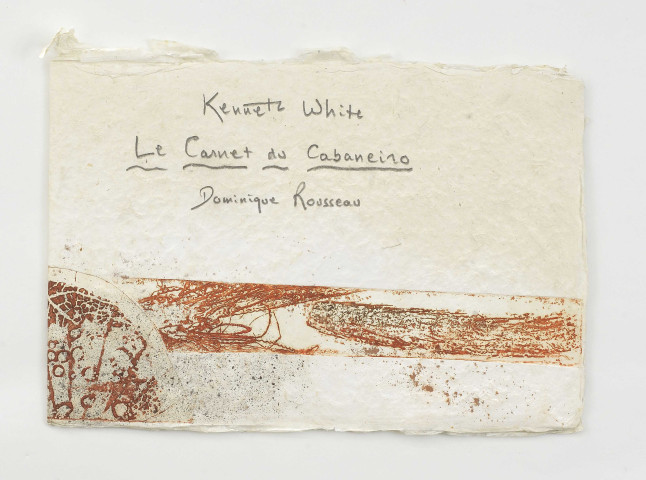 Kenneth White
Le Carnet du Cabaneiro
Dominique Rousseau